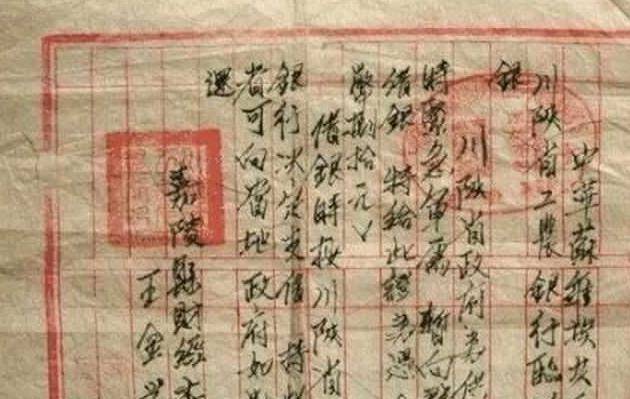 中華蘇維埃共
川陝省工農銀行臨
銀
川陝省政府为供
時緊急軍需 暫向
借銀 特给此證为憑
幣捌拾元
借銀時按川陝省
銀行决定支借 持
省可向當地政府如
還
嘉陵縣財經委
王金